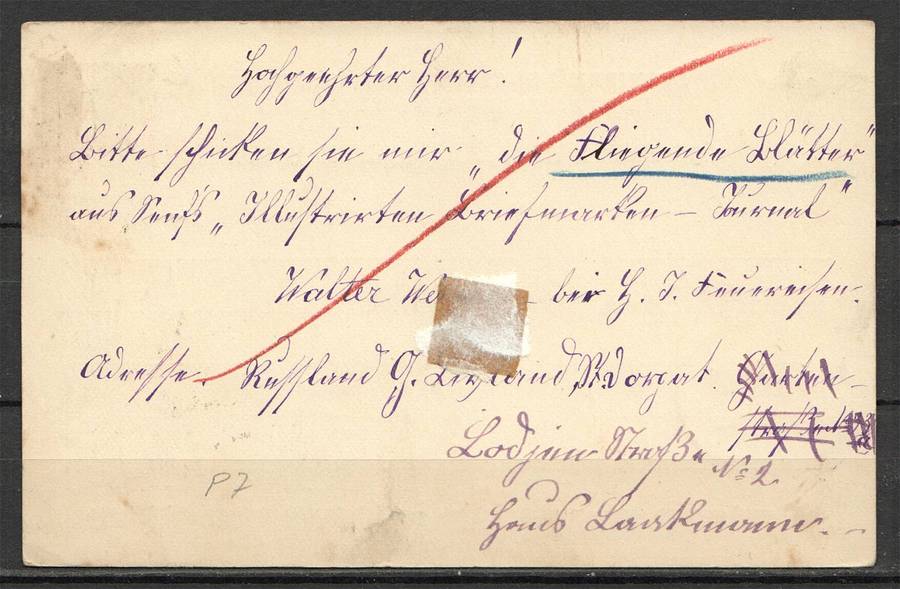 Hochgeehrter Herr!
Bitte schicken sie mir „die Fliegende Blätter"
aus Senf's „Illustrirten Briefmarken – Journal"
Walter bei H. J. Feuereisen.
Adresse Russland G. Livland St Dorpat. Garten-
Straße
Lodjen Straße № 2
Haus Laakmann.
P7